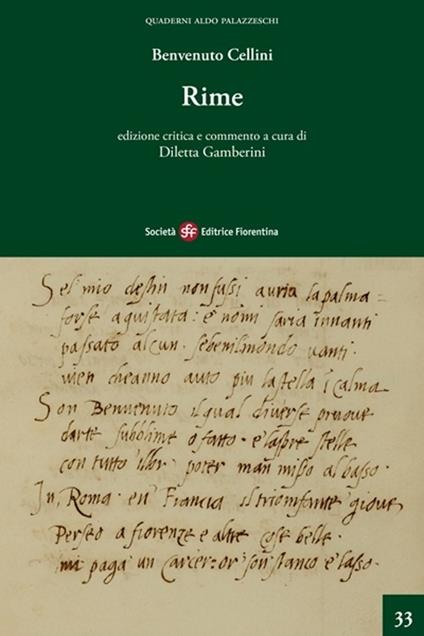 QUADERNI ALDO PALAZZESCHI
Benvenuto Cellini
Rime
edizione critica e commento a cura di
Diletta Gamberini
Società sff Editrice Fiorentina
Sel mio destin nonfussi auria lapalma
forse aquistata: e nomi saria innanti
passato alcun. sebenilmondo vanti.
uien cheanno auto piu lastella i calma
Son Benvenuto ilqual diverse pruove
darte subblime o fatto. e laspre stelle
con tutto illor. poter man misso al basso.
In Roma. en Francia il triomfante giove
Perseo a fiorenze e altre cose belle.
mi paga un carcer: or son stanco e lasso.
33